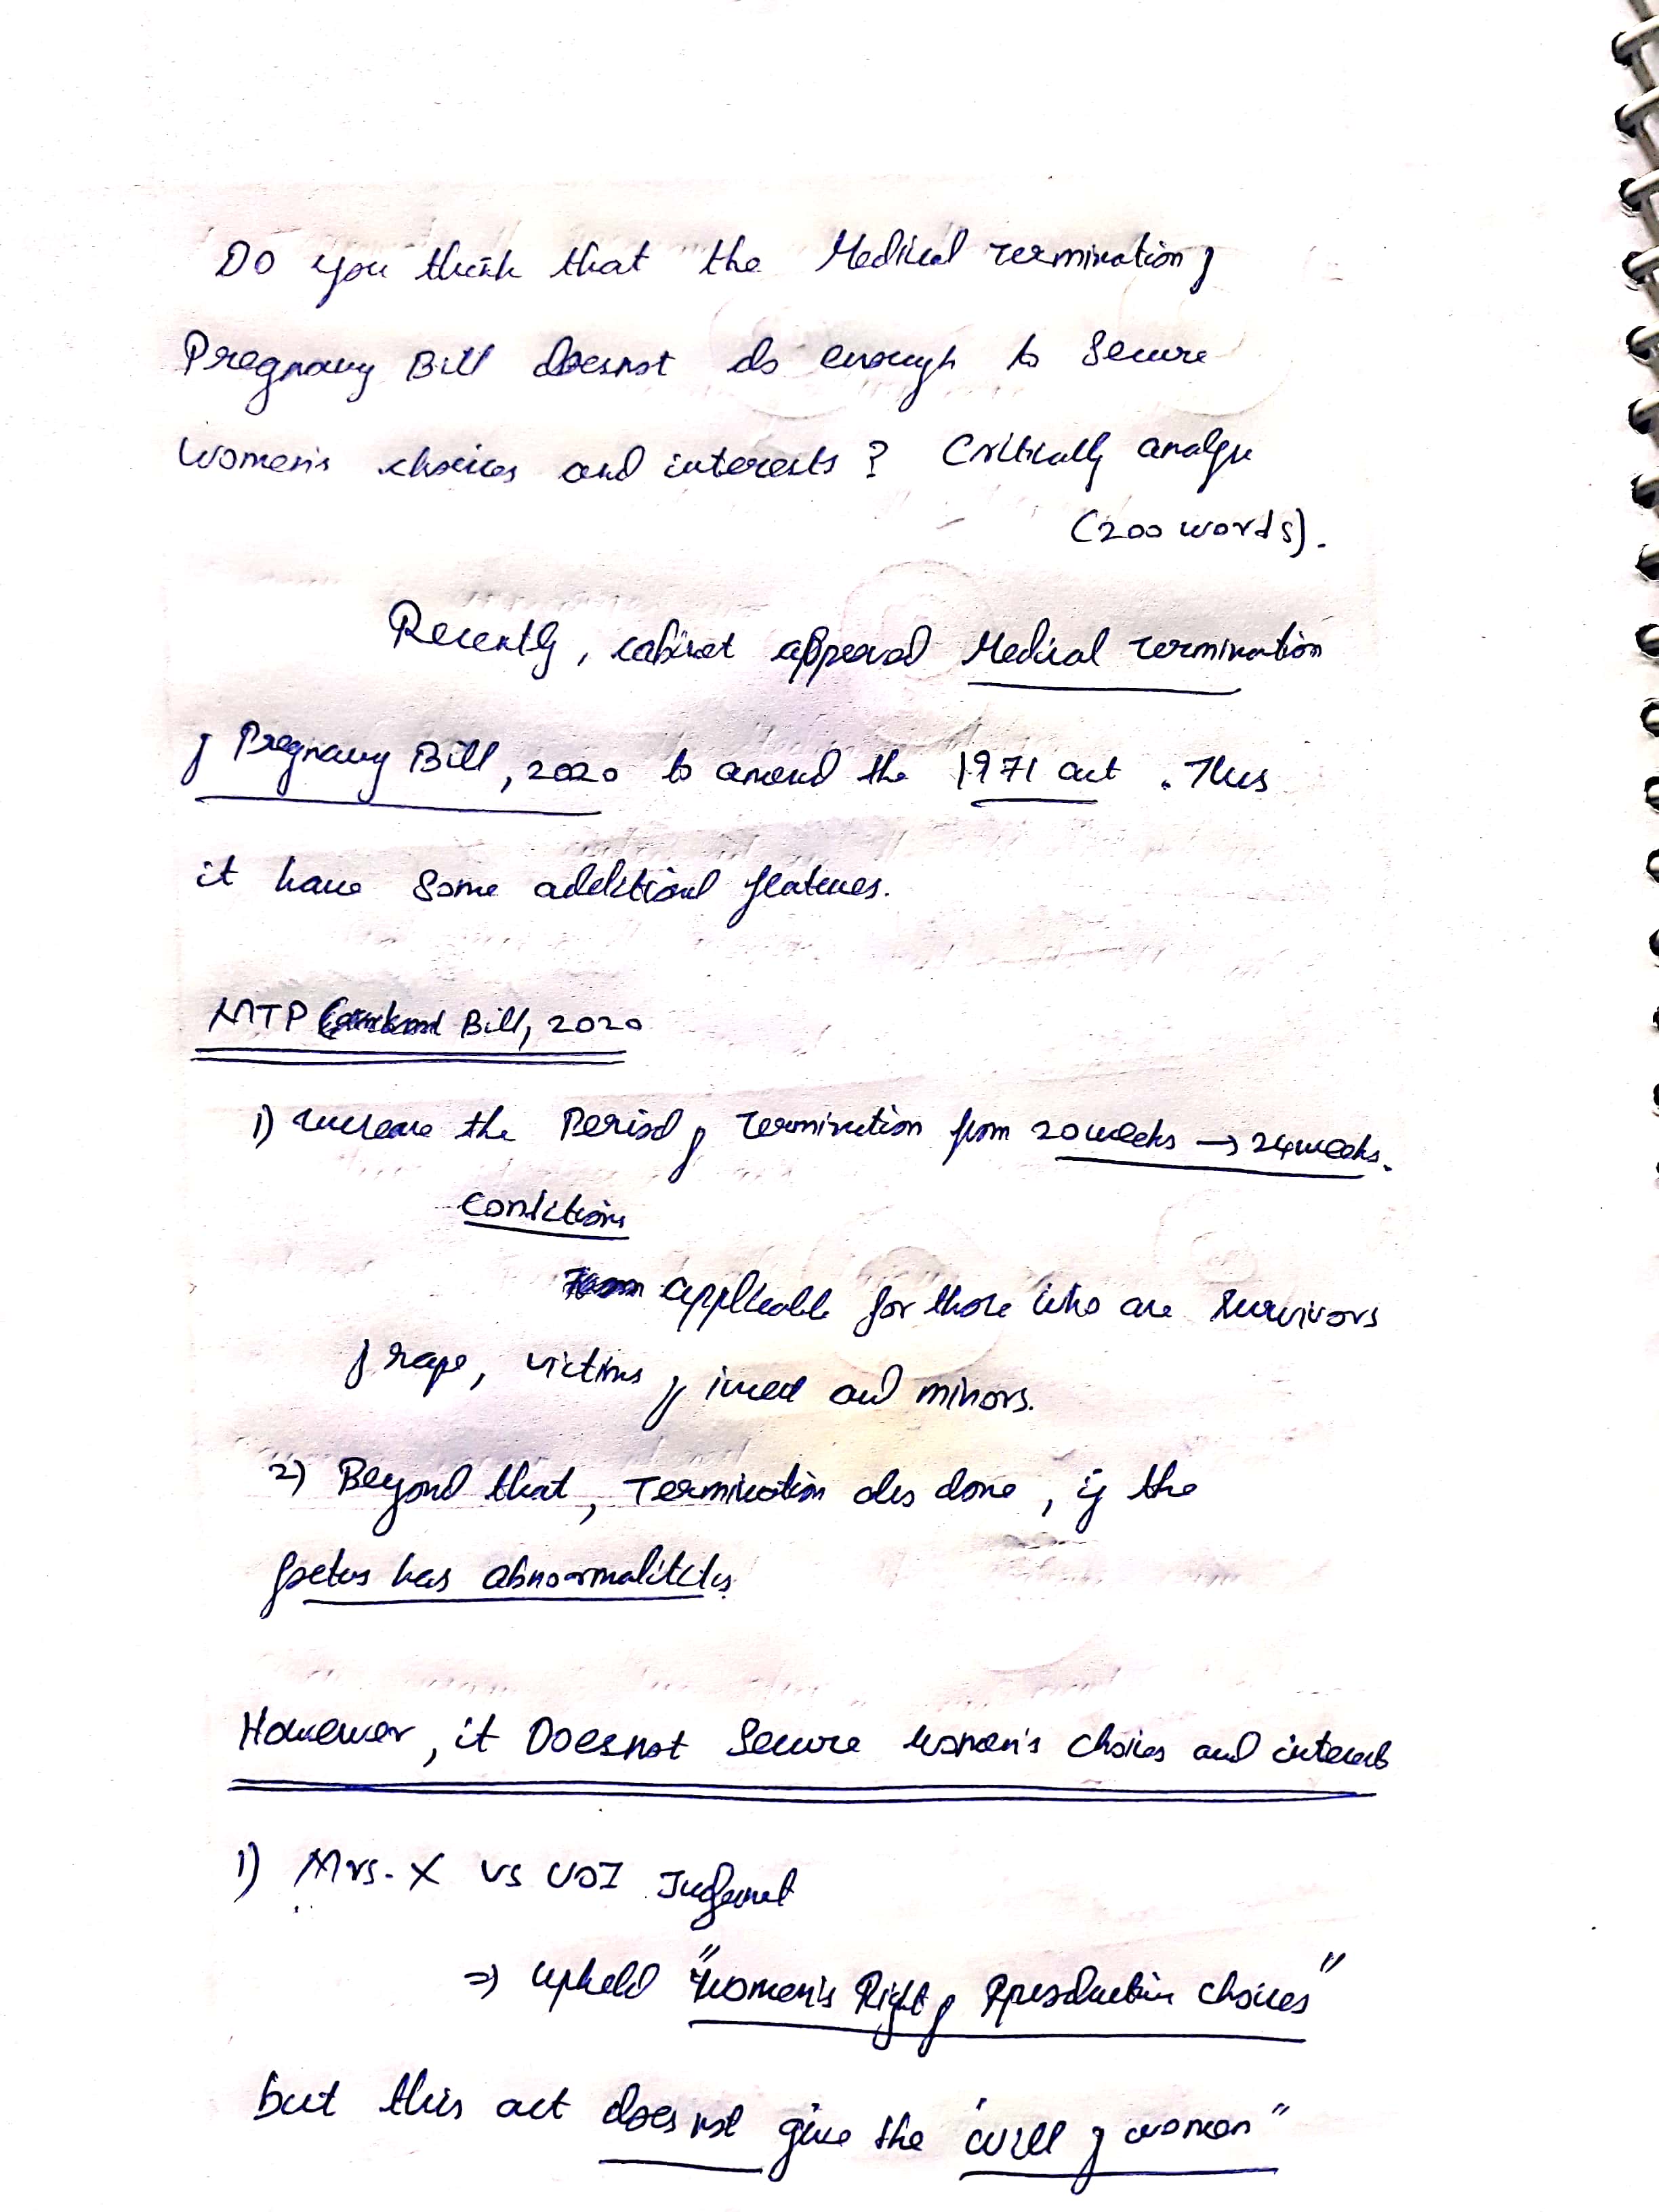 Do you think that the Medical Termination of
Pregnancy Bill doesnot do enough to Secure
Women's choices and interests? Critically analyse
(200 words).
Recently, cabinet approval Medical Termination
of Pregnancy Bill, 2020 to amend the 1971 act. Thus
it have some additional features.
MTP Bill, 2020
1) Increase the Period of Termination from 20 weeks → 24 weeks.
Conditions
applicable for those who are survivors
of rape, victims of incest and minors.
2) Beyond that, Termination also done, if the
foetus has abnormalities.
However, it Doesnot Secure women's choices and interests
1) Mrs. X vs UOI Judgement
⇒ upheld "Women's Right of Reproductive choices"
but this act does not give the "will of woman"